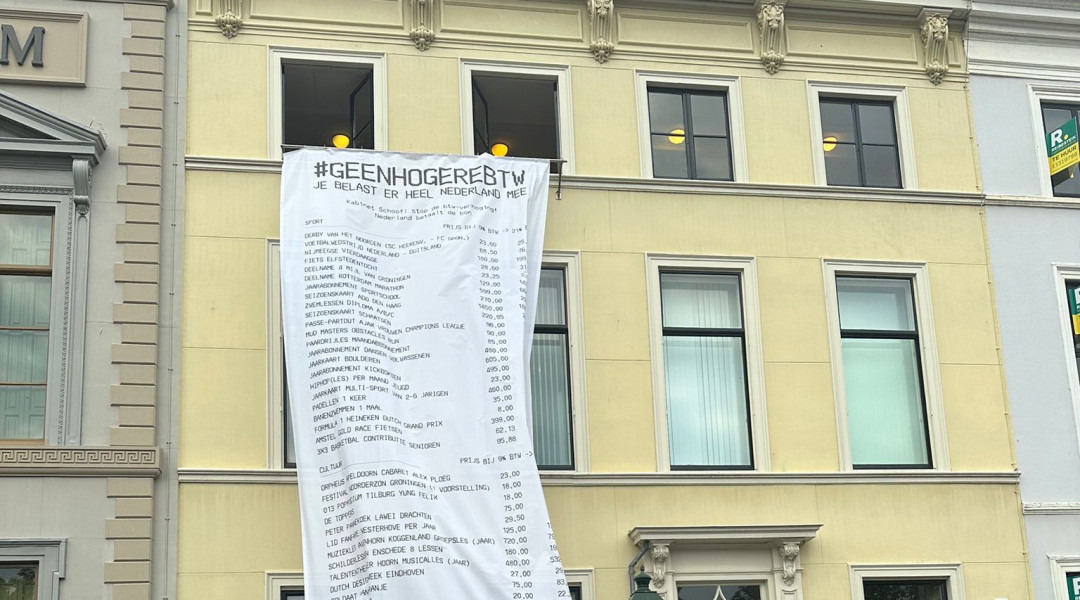 M
#GEENHOGEREBTW
JE BELAST ER HEEL NEDERLAND MEE
Kabinet Schoof: stop de btw-verhoging!
Nederland betaalt de bon
SPORT PRIJS BIJ 9% BTW -> 21%
DERBY VAN HET NOORDEN (SC HEERENV. - FC GRON.) 23,00
VOETBALWEDSTRIJD NEDERLAND - DUITSLAND 68,50
NIJMEEGSE VIERDAAGSE
FIETS ELFSTEDENTOCHT
DEELNAME 4 MIJL VAN GRONINGEN 23,25
DEELNAME ROTTERDAM MARATHON
JAARABONNEMENT SPORTSCHOOL
SEIZOENSKAART ADO DEN HAAG 270,00
ZWEMLESSEN DIPLOMA A/B/C
SEIZOENSKAART SCHAATSEN
PASSE-PARTOUT AJAX VROUWEN CHAMPIONS LEAGUE
MUD MASTERS OBSTACLES RUN 90,00
PAARDRIJLES MAANDABONNEMENT 85,00
JAARABONNEMENT DANSEN VOLWASSENEN
JAARKAART BOULDEREN 605,00
JAARABONNEMENT KICKBOKSEN 495,00
HIPHOP(LES) PER MAAND JEUGD 23,00
JAARKAART MULTI-SPORT VAN 2-6 JARIGEN 460,00
PADELLEN 1 KEER 35,00
BANENZWEMMEN 1 MAAL 8,00
FORMULA 1 HEINEKEN DUTCH GRAND PRIX 399,00
AMSTEL GOLD RACE FIETSEN 62,13
3X3 BASKETBAL CONTRIBUTIE SENIOREN 85,88
CULTUUR PRIJS BIJ 9% BTW ->
ORPHEUS APELDOORN CABARET ALEX PLOEG 23,00
FESTIVAL NOORDERZON GRONINGEN (1 VOORSTELLING) 18,00
013 POPPODIUM TILBURG YUNG FELIX 18,00
DE TOPPERS 75,00
PETER PANNEKOEK LAWEI DRACHTEN 29,50
LID FANFARE WESTERHOVE PER JAAR 125,00
MUZIEKLES AVENHORN KOGGENLAND GROEPSLES (JAAR) 720,00
SCHILDERLESSEN ENSCHEDE 8 LESSEN 180,00
TALENTENTHEATER HOORN MUSICALLES (JAAR) 480,00
DUTCH DESIGN WEEK EINDHOVEN 27,00
SOLDAAT VAN ORANJE 75,00
20,00
R.
TE HUUR